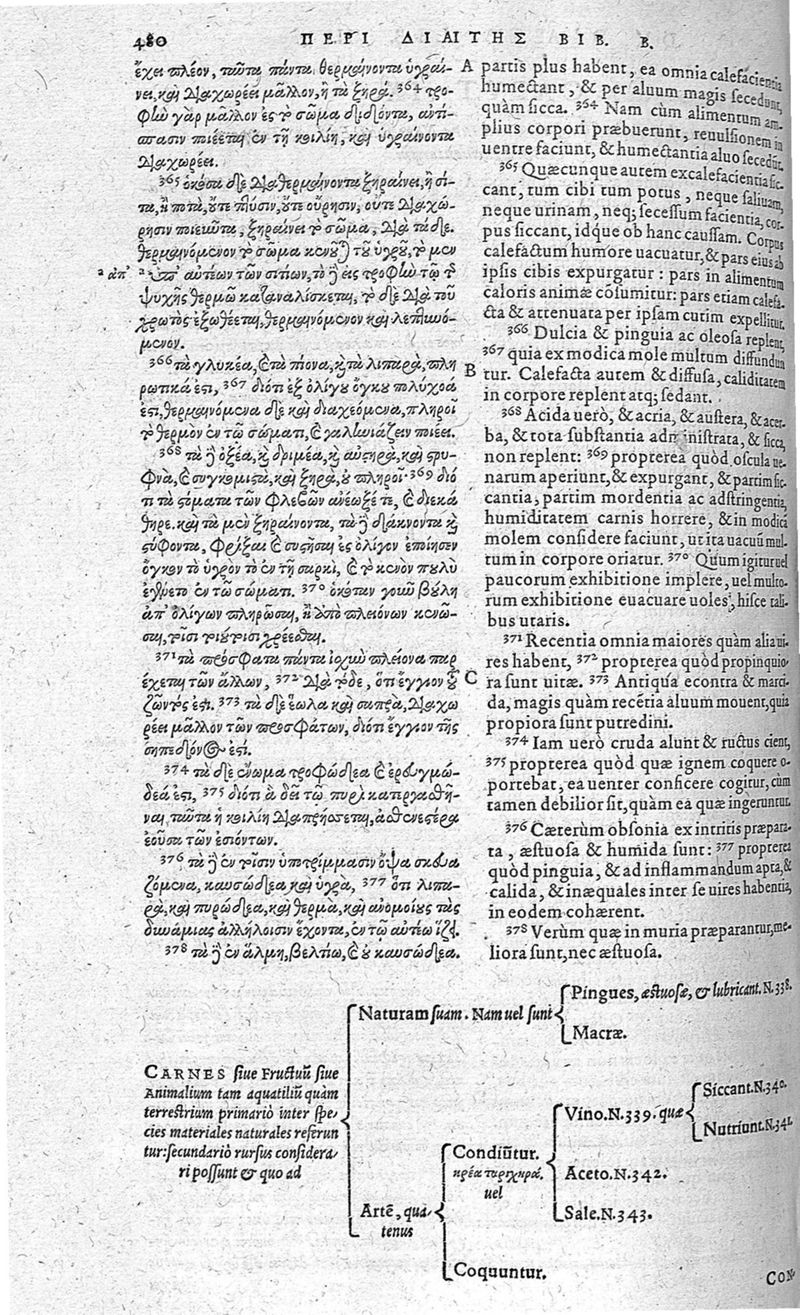 480 ΠΕΡΙ ΔΙΑΙΤΗΣ ΒΙΒ. Β.
ἔχει πλέον, ταῦτα πάντα θερμαίνοντα ὑγραί-
νει, καὶ διαχωρέει μᾶλλον, ἢ τὰ ξηρά. 364 τρο-
φὴν γὰρ μᾶλλον ἐς τὸ σῶμα διδόντα, ἀντί-
σπασιν ποιέεται ἐν τῇ κοιλίῃ, καὶ ὑγραίνοντα
διαχωρέει.
365 ὁκόσα δὲ διαθερμαίνοντα ξηραίνει, ἢ σί-
τα, ἢ ποτὰ, οὔτε πτύσιν, οὔτε οὔρησιν, οὔτε διαχώ-
ρησιν ποιεῦντα, ξηραίνει τὸ σῶμα, διὰ τάδε.
θερμαινόμενον τὸ σῶμα κενοῦται τοῦ ὑγροῦ, τὸ μὲν
a ἀπ' a ὑπ' αὐτέων τῶν σιτίων, τὸ δὲ ἐς τροφὴν τῷ τῆς
ψυχῆς θερμῷ καταναλίσκεται, τὸ δὲ διὰ τοῦ
χρωτὸς ἐξωθέεται, θερμαινόμενον καὶ λεπτυνό-
μενον.
366 τὰ γλυκέα, καὶ τὰ πίονα, καὶ τὰ λιπαρὰ, πλη
ρωτικά ἐστι, 367 διότι ἐξ ὀλίγου ὄγκου πολύχοά
ἐστι, θερμαινόμενα δὲ καὶ διαχεόμενα, πληροῖ
τὸ θερμὸν ἐν τῷ σώματι, καὶ γαληνιάζειν ποιέει.
368 τὰ δὲ ὀξέα, καὶ δριμέα, καὶ αὐστηρὰ, καὶ στρυ-
φνὰ, καὶ συγκομιστὰ, καὶ ξηρὰ, οὐ πληροῖ· 369 διό
τι τὰ στόματα τῶν φλεβῶν ἀνέωξέ τε, καὶ διεκά
θηρε. καὶ τὰ μὲν ξηραίνοντα, τὰ δὲ δάκνοντα καὶ
στύφοντα, φρίξαι καὶ συστῆσαι ἐς ὀλίγον ἐποίησεν
ὄγκον τὸ ὑγρὸν τὸ ἐν τῇ σαρκὶ, καὶ τὸ κενὸν πουλὺ
ἐγένετο ἐν τῷ σώματι. 370 ὁκόταν γοῦν βούλῃ
ἀπ' ὀλίγων πληρῶσαι, ἢ ἀπὸ πλειόνων κενῶ-
σαι, τοῖσι τοιούτοισι χρέεσθαι.
371 τὰ πρόσφατα πάντα ἰσχὺν πλείονα παρ
έχεται τῶν ἄλλων, 372 διὰ τόδε, ὅτι ἔγγιον τοῦ
ζῶντός ἐστι. 373 τὰ δὲ ἕωλα καὶ σαπρὰ, διαχω
ρέει μᾶλλον τῶν προσφάτων, διότι ἔγγιον τῆς
σηπεδόνος ἐστι.
374 τὰ δὲ ἔνωμα τροφώδεα καὶ ἐρευγμώ-
δεά ἐστι, 375 διότι ἃ δεῖ τῷ πυρὶ κατεργασθῆ-
ναι, ταῦτα ἡ κοιλίη διαπρήσσεται, ἀσθενεστέρα
ἐοῦσα τῶν ἐσιόντων.
376 τὰ δὲ ἐν τοῖσιν ὑποτρίμμασιν ὄψα σκευα
ζόμενα, καυσώδεα, καὶ ὑγρὰ, 377 ὅτι λιπα-
ρὰ, καὶ πυρώδεα, καὶ θερμὰ, καὶ ἀνομοίους τὰς
δυνάμιας ἀλλήλοισιν ἔχοντα, ἐν τῷ αὐτέῳ ἵζει.
378 τὰ δὲ ἐν ἅλμῃ, βελτίω, καὶ οὐ καυσώδεα.
A partis plus habent, ea omnia calefacientia
humectant, & per aluum magis secedunt,
quàm sicca. 364 Nam cùm alimentum am-
plius corpori præbuerunt, reuulsionem in
uentre faciunt, & humectantia aluo secedunt.
365 Quæcunque autem excalefacientia sic-
cant, tum cibi tum potus, neque saliuam,
neque urinam, neq; secessum facientia, cor-
pus siccant, idque ob hanc caussam. Corpus
calefactum humore uacuatur, & pars eius ab
ipsis cibis expurgatur: pars in alimentum
caloris animæ cōsumitur: pars etiam calefa-
cta & attenuata per ipsam cutim expellitur.
366 Dulcia & pinguia ac oleosa replent,
367 quia ex modica mole multum diffundun
B tur. Calefacta autem & diffusa, caliditatem
in corpore replent atq; sedant.
368 Acida uerò, & acria, & austera, & acer-
ba, & tota substantia administrata, & sicca,
non replent: 369 propterea quòd oscula ue-
narum aperiunt, & expurgant, & partim sic-
cantia, partim mordentia ac adstringentia,
humiditatem carnis horrere, & in modicā
molem considere faciunt, ut ita uacuū mul-
tum in corpore oriatur. 370 Quum igitur uel
paucorum exhibitione implere, uel multo-
rum exhibitione euacuare uoles, hisce tali-
bus utaris.
371 Recentia omnia maiores quàm alia ui-
res habent, 372 propterea quòd propinquio-
C ra sunt uitæ. 373 Antiqua econtra & marci-
da, magis quàm recētia aluum mouent, quia
propiora sunt putredini.
374 Iam uerò cruda alunt & ructus cient,
375 propterea quòd quæ ignem coquere o-
portebat, ea uenter conficere cogitur, cùm
tamen debilior sit, quàm ea quæ ingeruntur.
376 Cæterùm obsonia ex intritis præpara-
ta, æstuosa & humida sunt: 377 propterea
quòd pinguia, & ad inflammandum apta, &
calida, & inæquales inter se uires habentia,
in eodem cohærent.
378 Verùm quæ in muria præparantur, me-
liora sunt, nec æstuosa.
CARNES siue Fructuū siue
Animalium tam aquatiliū quàm
terrestrium primariò inter spe-
cies materiales naturales referun
tur: secundariò rursus considera-
ri possunt & quo ad
Naturam suam. Nam uel sunt
Pingues, æstuosæ, & lubricant. N.338.
Macræ.
Artē, qua-
tenus
Condiūtur.
κρέα ταριχηρά.
uel
Vino. N.339. quæ
Siccant. N.340.
Nutriunt. N.341.
Aceto. N.342.
Sale. N.343.
Coquuntur.
CON-